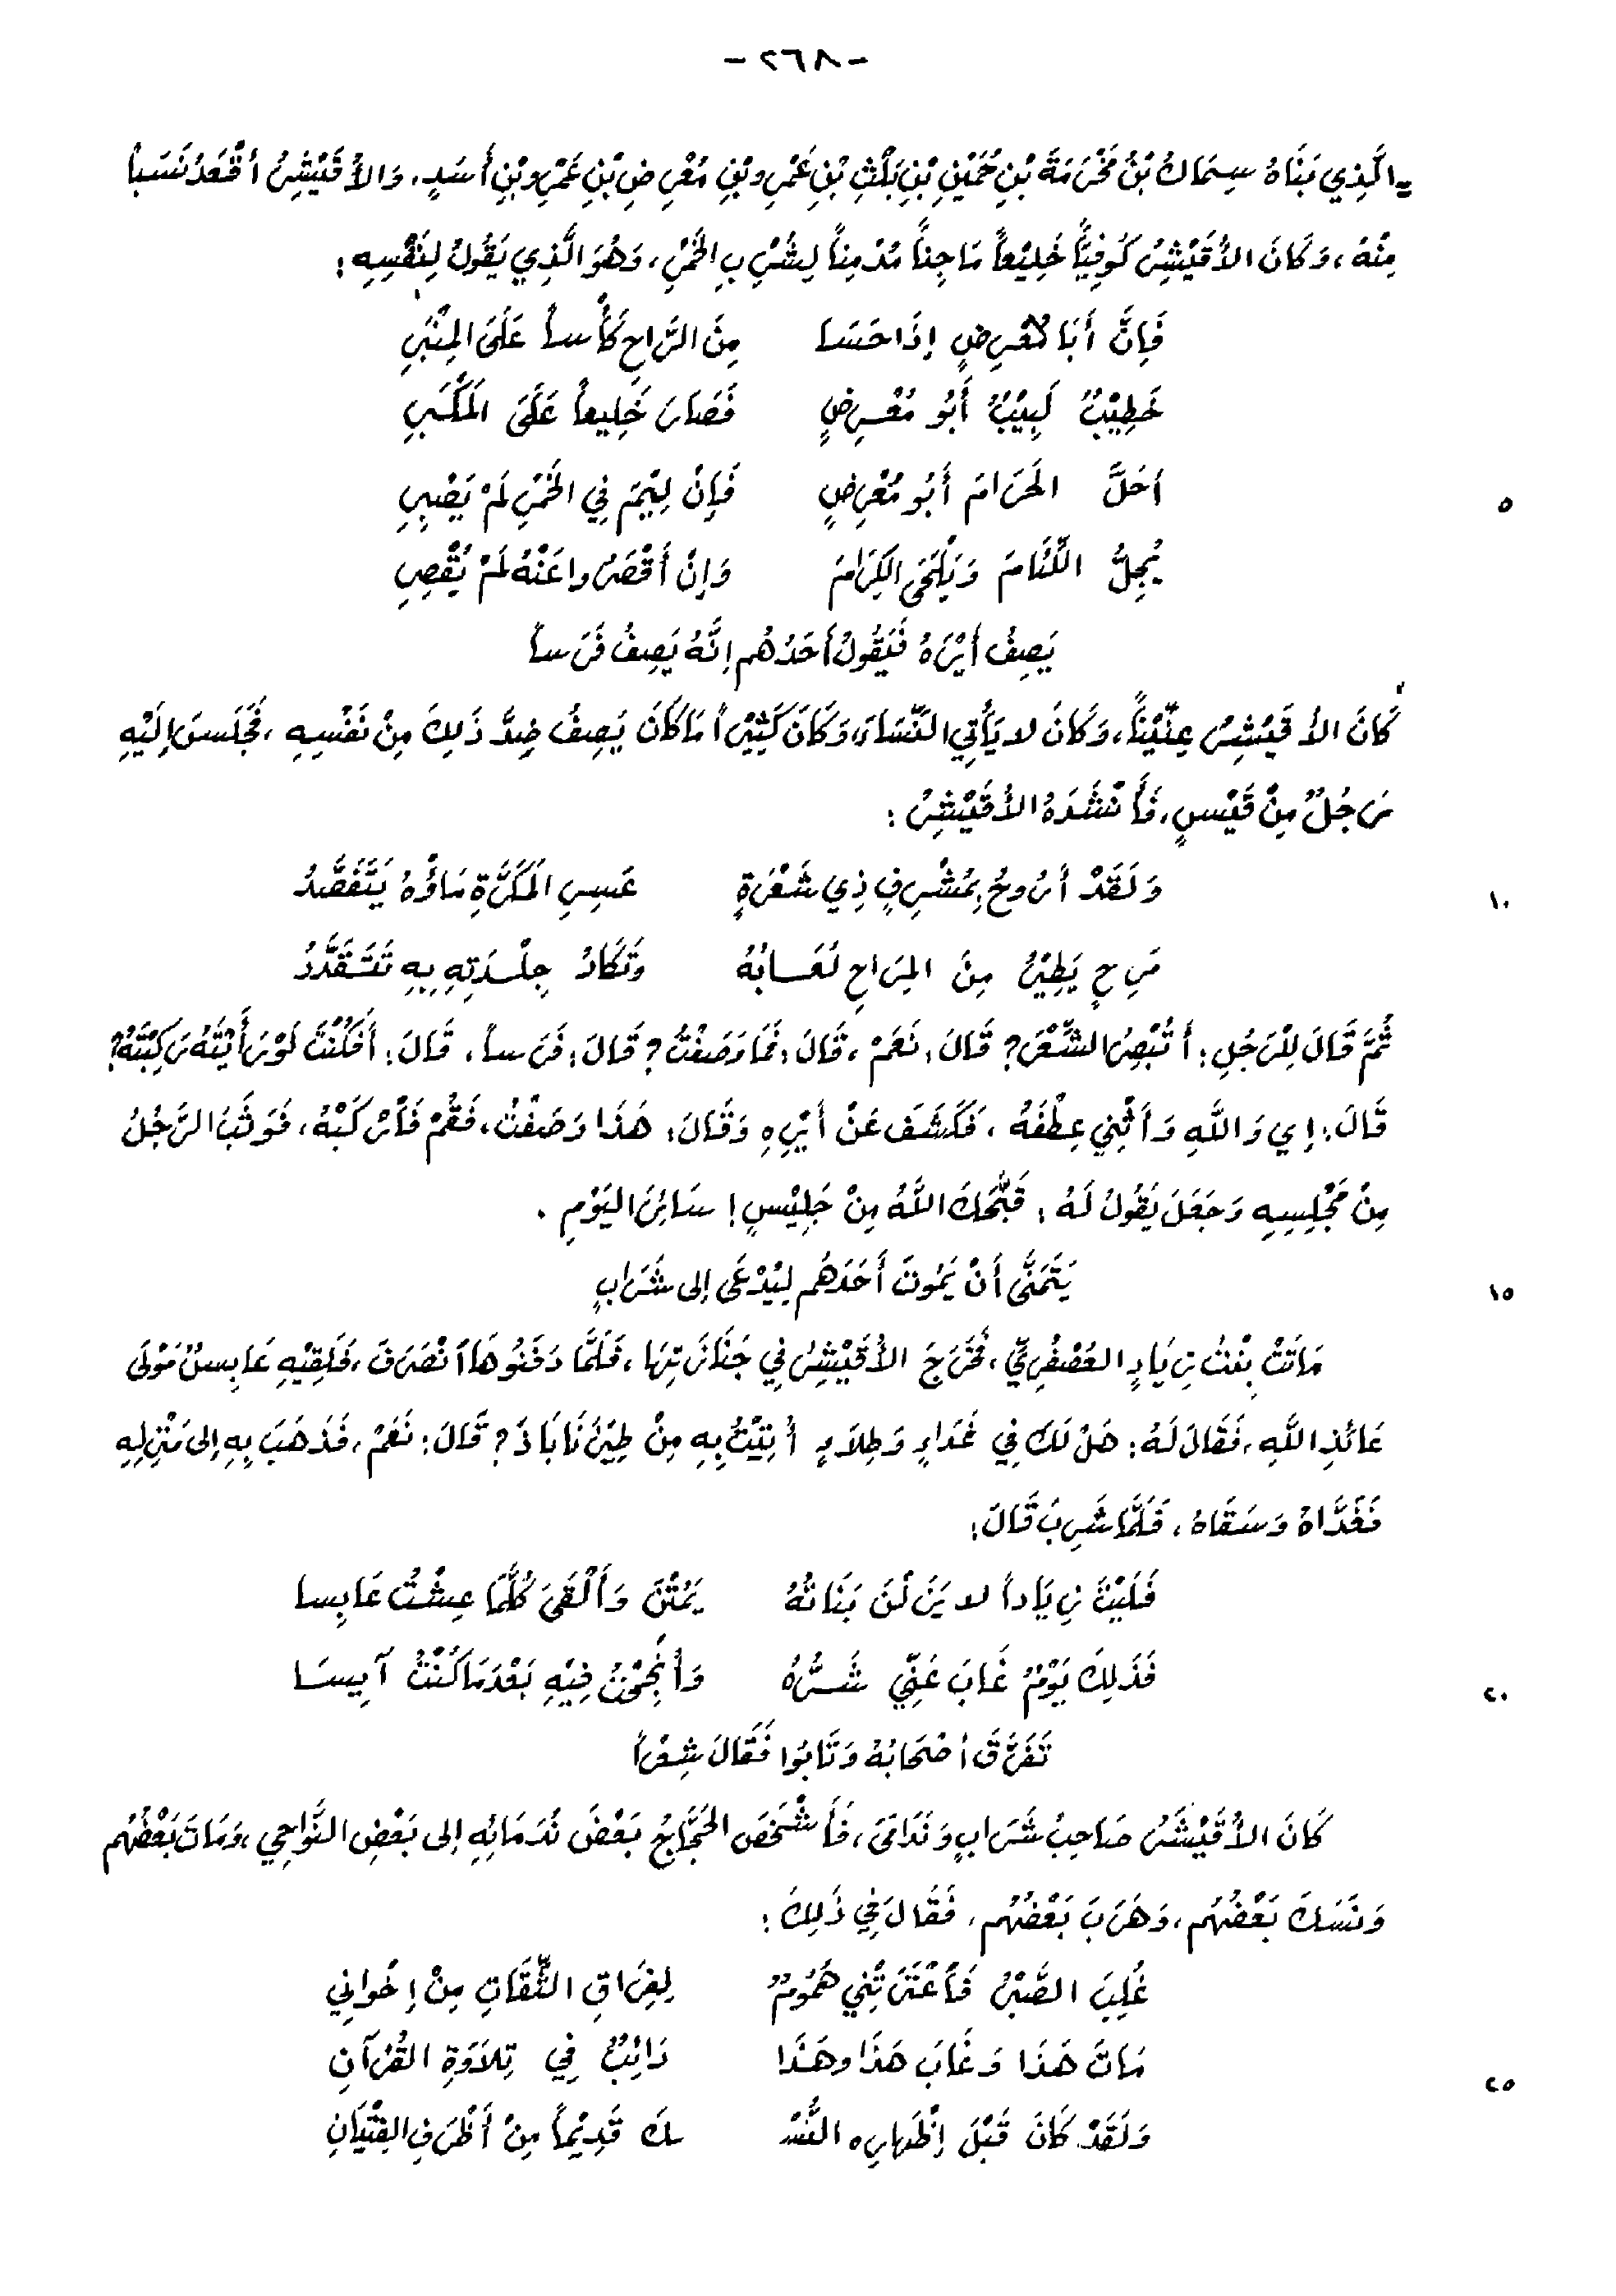 - ٢٦٨ -
= الَّذِي بَنَاهُ سِمَاكُ بْنُ مَخْرَمَةَ بْنِ حُمَيْنِ بْنِ بَلْثِ بْنِ عَمْرِو بْنِ مُعْرِضِ بْنِ عَمْرِو بْنِ أَسَدٍ، وَالأُقَيْشِرُ أقْعَدُ نَسَباً
مِنْهُ، وَكَانَ الأُقَيْشِرُ كُوفِيّاً خَلِيْعاً مَاجِناً مُدْمِناً لِشُرْبِ الخَمْرِ، وَهُوَ الَّذِي يَقُولُ لِنَفْسِهِ:
فَإِنَّ أَبَا مُعْرِضٍ إِذَا حَسَا مِنَ الرَّاحِ كَأْساً عَلَى المِنْبَرِ
خَطِيْبٌ لَبِيْبٌ أَبُو مُعْرِضٍ فَصَارَ خَلِيعاً عَلَى المَكْبَرِ
٥ أحَلَّ الحَرَامَ أَبُو مُعْرِضٍ فَإِنْ لِيْمَ فِي الخَمْرِ لَمْ يَصْبِرِ
يُجِلُّ اللِّئَامَ وَيَلْحَى الكِرَامَ وَإِنْ أَقْصَرُوا عَنْهُ لَمْ يُقْصِرِ
يَصِفُ أَيْرَهُ فَيَقُولُ أَحَدُهُم إنَّهُ يَصِفُ فَرَساً
كَانَ الأُقَيْشِرُ عِنِّيْناً، وَكَانَ لا يَأْتِي النِّسَاءَ، وَكَانَ كَثِيْراً مَا كَانَ يَصِفُ ضِدَّ ذَلِكَ مِنْ نَفْسِهِ، فَجَلَسَ إِلَيْهِ
رَجُلٌ مِنْ قَيْسٍ، فَأَنْشَدَهُ الأُقَيْشِرُ:
١٠ وَلَقَدْ أرُوحُ بِمُشْرِفٍ ذِي شَعْرَةٍ عَسِرِ المَكَرَّةِ مَاؤُهُ يَتَفَصَّدُ
مَرِحٍ يَطِيْرُ مِنَ المِرَاحِ لُعَابُهُ وَتَكَادُ جِلْدَتِهِ بِهِ تَتَقَدَّدُ
ثُمَّ قَالَ لِلْرَجُلِ: أَتُبْصِرُ الشِّعْرَ؟ قَالَ: نَعَمْ، قَالَ: فَمَا وَصَفْتُ؟ قَالَ: فَرَساً، قَالَ: أَفَكُنْتَ لَوْ رَأَيْتَهُ رَكِبْتَهُ؟
قَالَ: إي وَاللَّهِ وَأَثْنِي عِطْفَهُ، فَكَشَفَ عَنْ أَيْرِهِ وَقَالَ: هَذَا وَصَفْتُ، فَقُمْ فَأرْكَبْهُ، فَوَثَبَ الرَّجُلُ
مِنْ مَجْلِسِهِ وَجَعَلَ يَقُولُ لَهُ: قَبَّحَكَ اللَّهُ مِنْ جَلِيْسٍ! سَائِرَ اليَوْمِ.
١٥ يَتَمَنَّى أَنْ يَمُوتَ أَحَدَهُم لِيُدْعَى إلى شَرَابٍ
مَاتَتْ بِنْتُ زِيَادٍ العُصْفُرِيِّ، فَخَرَجَ الأُقَيْشِرُ فِي جَنَازَتِهَا، فَلَمَّا دَفَنُوهَا انْصَرَفَ، فَلَقِيْهِ عَابِسٌ مَوْلَى
عَائِذِ اللَّهِ، فَقَالَ لَهُ: هَلْ لَكَ فِي غَدَاءٍ وَطِلاَءٍ أُتِيْتُ بِهِ مِنْ طِيْرَنَابَاذَ؟ قَالَ: نَعَمْ، فَذَهَبَ بِهِ إلى مَنْزِلِهِ
فَغَدَّاهُ وَسَقَاهُ، فَلَمَّا شَرِبَ قَالَ:
فَلَيْتَ زِيَاداً لا يَزَلْنَ بَنَاتُهُ يَمُتْنَ وَأَلْقَى كُلَّمَا عِشْتُ عَابِسا
٢٠ فَذَلِكَ يَوْمٌ غَابَ عَنِّي شَرُّهُ وَأُنْجِحْتُ فِيْهِ بَعْدَمَا كُنْتُ آيِسَا
تَفَرَّقَ أصْحَابُهُ وَتَابُوا فَقَالَ شِعْراً
كَانَ الأُقَيْشَرُ صَاحِبُ شَرَابٍ وَنَدَامَى، فَأَشْخَصَ الحَجَّاجُ بَعْضَ نُدَمَائِهِ إلى بَعْضِ النَّوَاحِي، وَمَاتَ بَعْضُهُم
وَنَسَكَ بَعْضُهُم، وَهَرَبَ بَعْضُهُم، فَقَالَ فِي ذَلِكَ:
غُلِبَ الصَّبْرُ فَاعْتَرَتْنِي هُمُومٌ لِفِرَاقِ الثِّقَاتِ مِنْ إِخْوانِي
٢٥ مَاتَ هَذَا وَغَابَ هَذَا وهَذَا دَائِبٌ فِي تِلاَوَةِ القُرْآنِ
وَلَقَدْ كَانَ قَبْلَ إِظْهَارِهِ النُّسْـ ـكَ قَدِيْماً مِنْ أَظْرَفِ الفِتْيَانِ